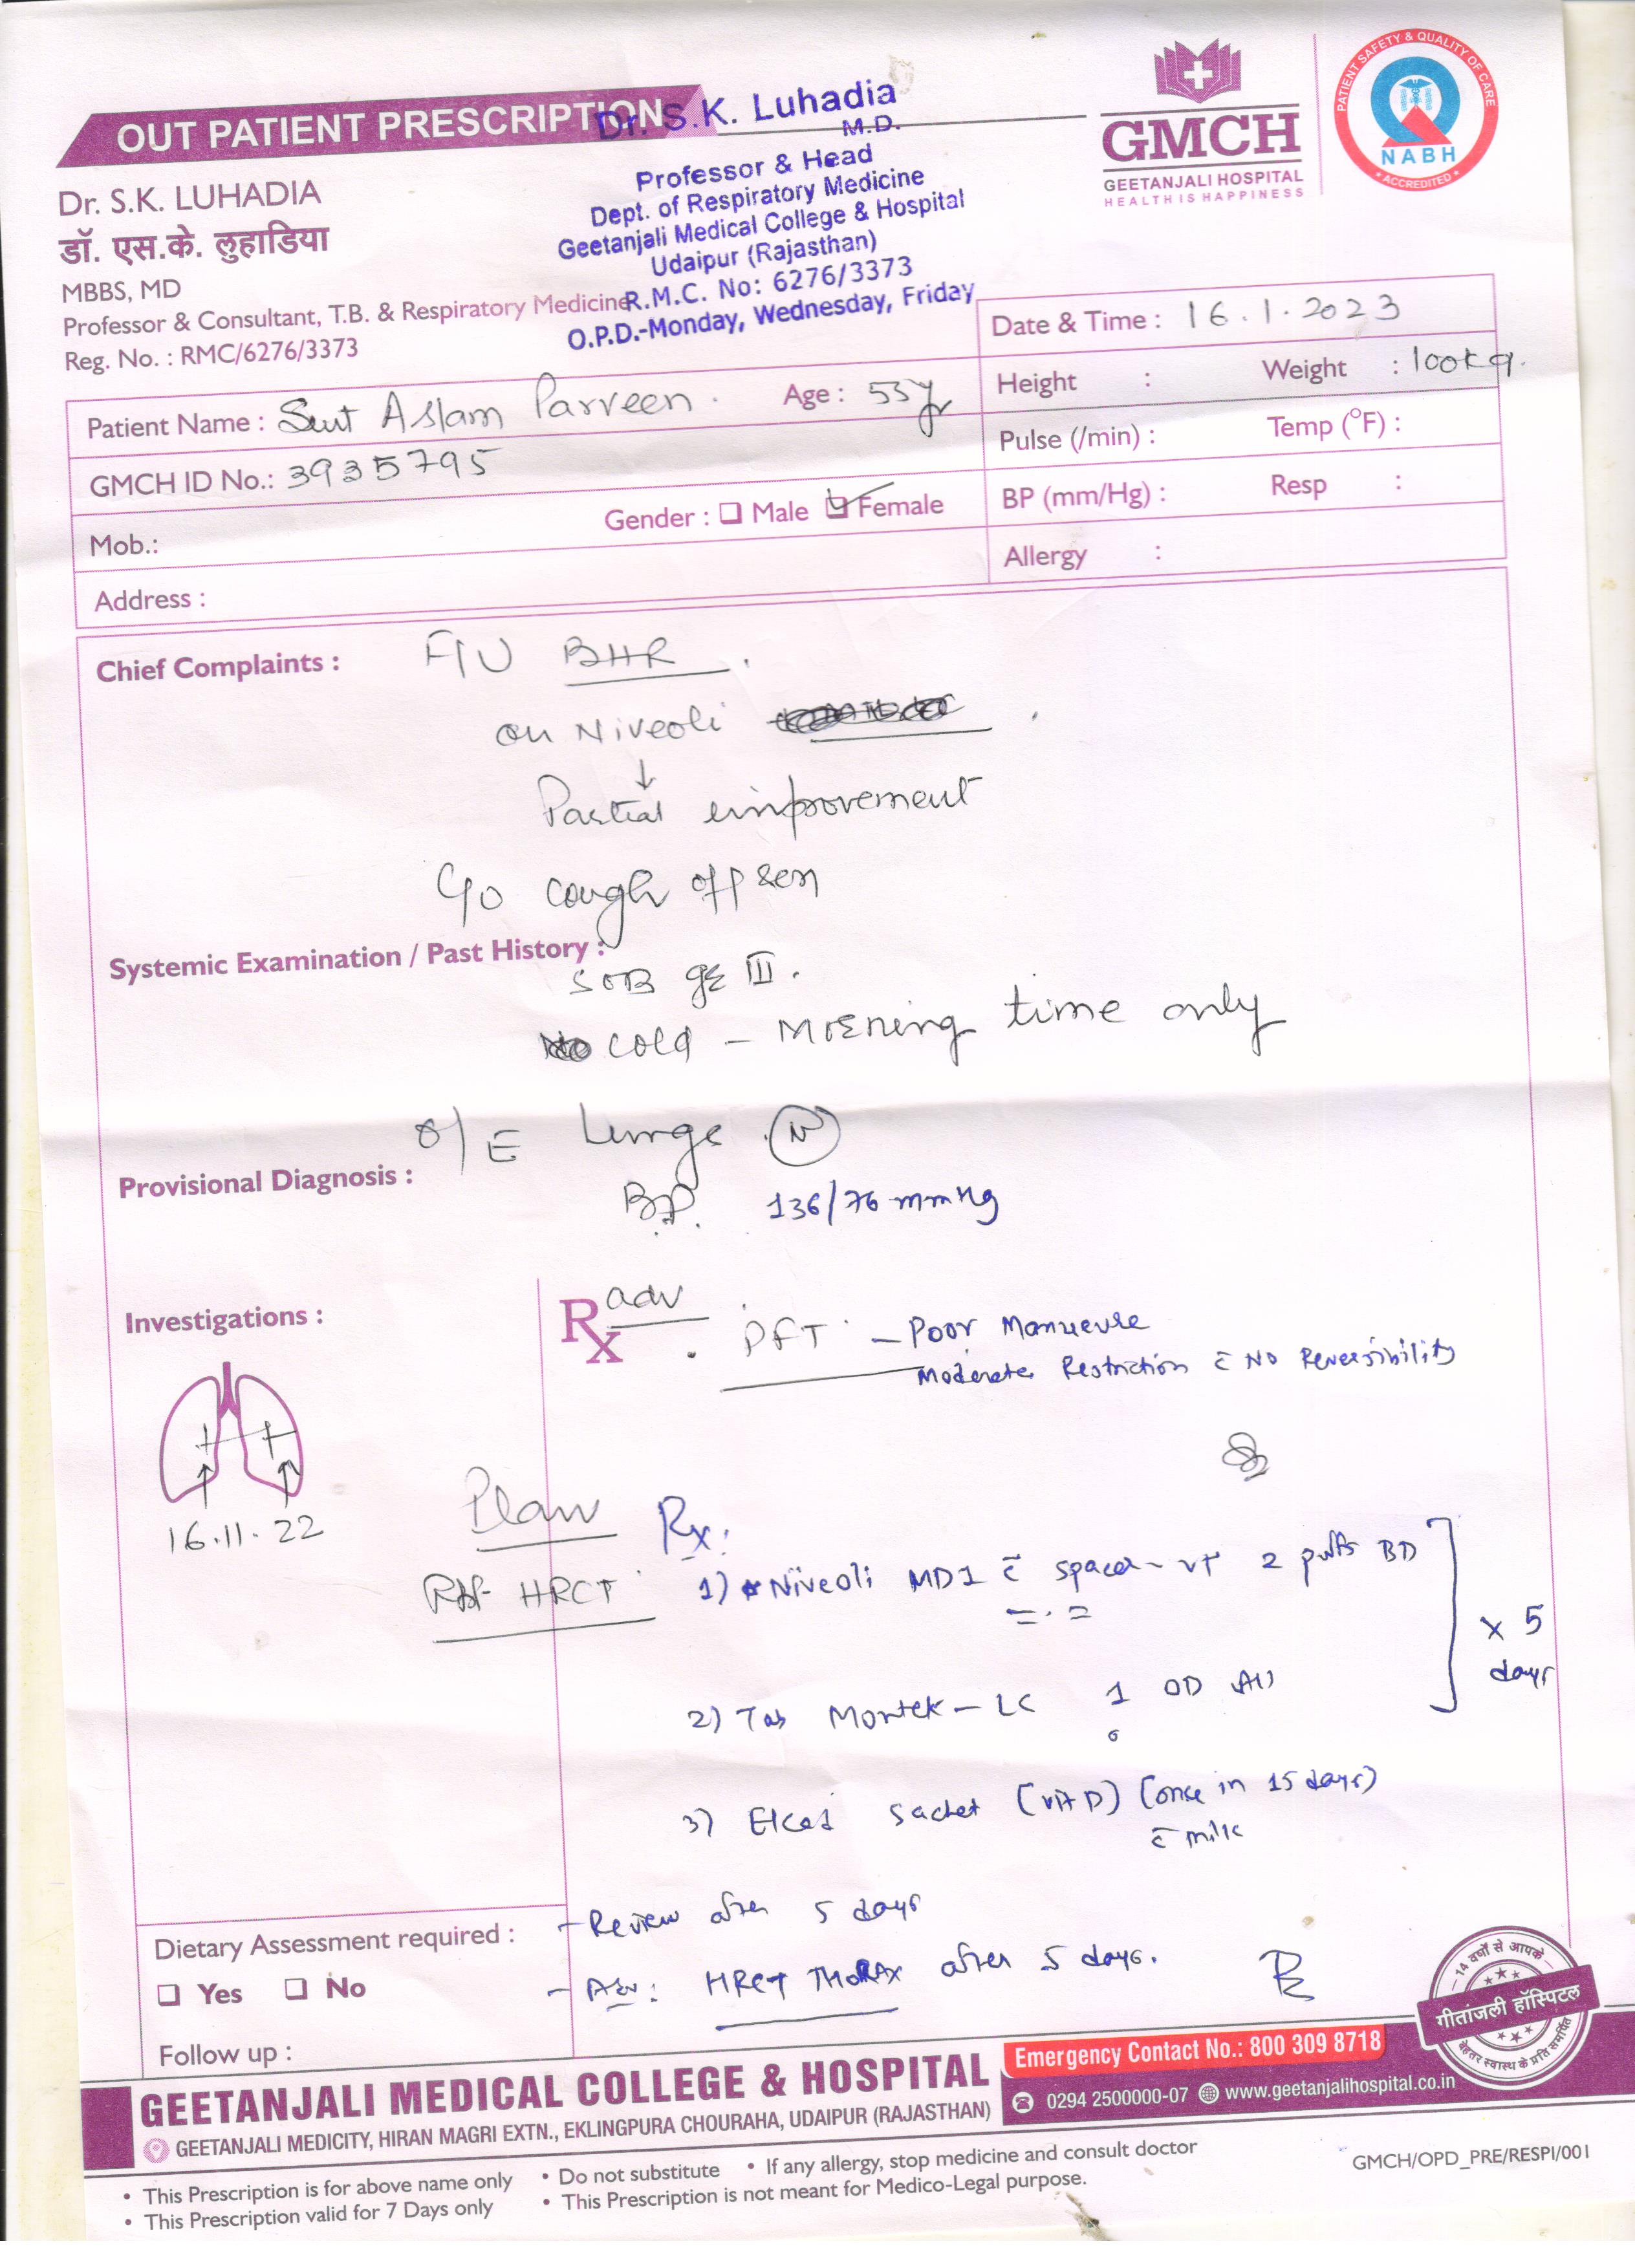 OUT PATIENT PRESCRIPTION
Dr. S.K. Luhadia
M.D.
Professor & Head
Dept. of Respiratory Medicine
Geetanjali Medical College & Hospital
Udaipur (Rajasthan)
R.M.C. No: 6276/3373
O.P.D.-Monday, Wednesday, Friday
GMCH
GEETANJALI HOSPITAL
HEALTH IS HAPPINESS
PATIENT SAFETY & QUALITY OF CARE
NABH
ACCREDITED
Dr. S.K. LUHADIA
डॉ. एस.के. लुहाडिया
MBBS, MD
Professor & Consultant, T.B. & Respiratory Medicine
Reg. No. : RMC/6276/3373
Date & Time : 16.1.2023
Height : Weight : 100kg.
Patient Name : Smt Aslam Parveen. Age : 55yr
Pulse (/min) : Temp (°F) :
GMCH ID No.: 3935795
BP (mm/Hg) : Resp :
Gender : Male Female
Mob.:
Allergy :
Address :
Chief Complaints : F/U BHR.
on Niveoli
↓
Partial eimprovement
C/o cough
Systemic Examination / Past History :
SOB III.
cold - Morning time only
O/E Lungs N
Provisional Diagnosis :
BP. 136/76 mmHg
Investigations :
Rx adv
. PFT - Poor Manuevre
Moderate Restriction c̄ No Reversibility
16.11.22
Plan
HRCT
Rx.
1) Niveoli MDI c̄ spacer 2 puffs BD
2) Tab Montek-LC 1 OD
x 5
days
3) sachet (vit D) (once in 15 days)
c̄ milk
- Review after 5 days
- Adv: HRCT THORAX after 5 days.
Dietary Assessment required :
Yes No
Follow up :
14 वर्षों से आपके
गीतांजली हॉस्पिटल
बेहतर स्वास्थ्य के प्रति समर्पित
GEETANJALI MEDICAL COLLEGE & HOSPITAL
GEETANJALI MEDICITY, HIRAN MAGRI EXTN., EKLINGPURA CHOURAHA, UDAIPUR (RAJASTHAN)
Emergency Contact No.: 800 309 8718
0294 2500000-07 www.geetanjalihospital.co.in
• This Prescription is for above name only • Do not substitute • If any allergy, stop medicine and consult doctor
• This Prescription valid for 7 Days only • This Prescription is not meant for Medico-Legal purpose.
GMCH/OPD_PRE/RESPI/001